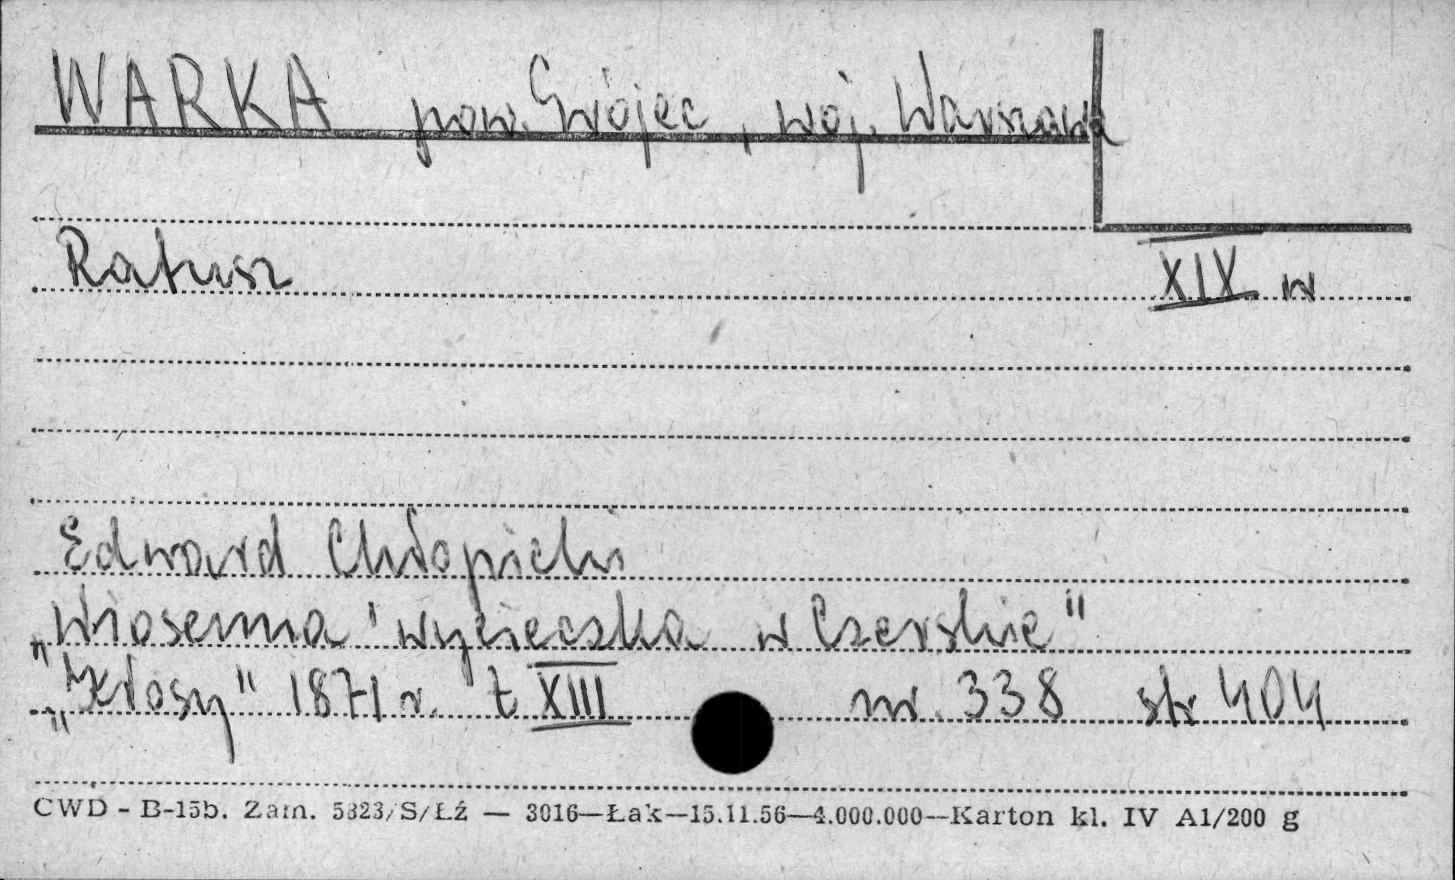 WARKA pow. Grójec, woj. Warszawa
Ratusz XIX w
Edward Chłopicki
„Wiosenna wycieczka w Czerskie"
„Kłosy" 1871 r. t XIII nr. 338 str 404
CWD - B-15b. Zam. 5823/S/Łź — 3016—Łak—15.11.56—4.000.000—Karton kl. IV A1/200 g